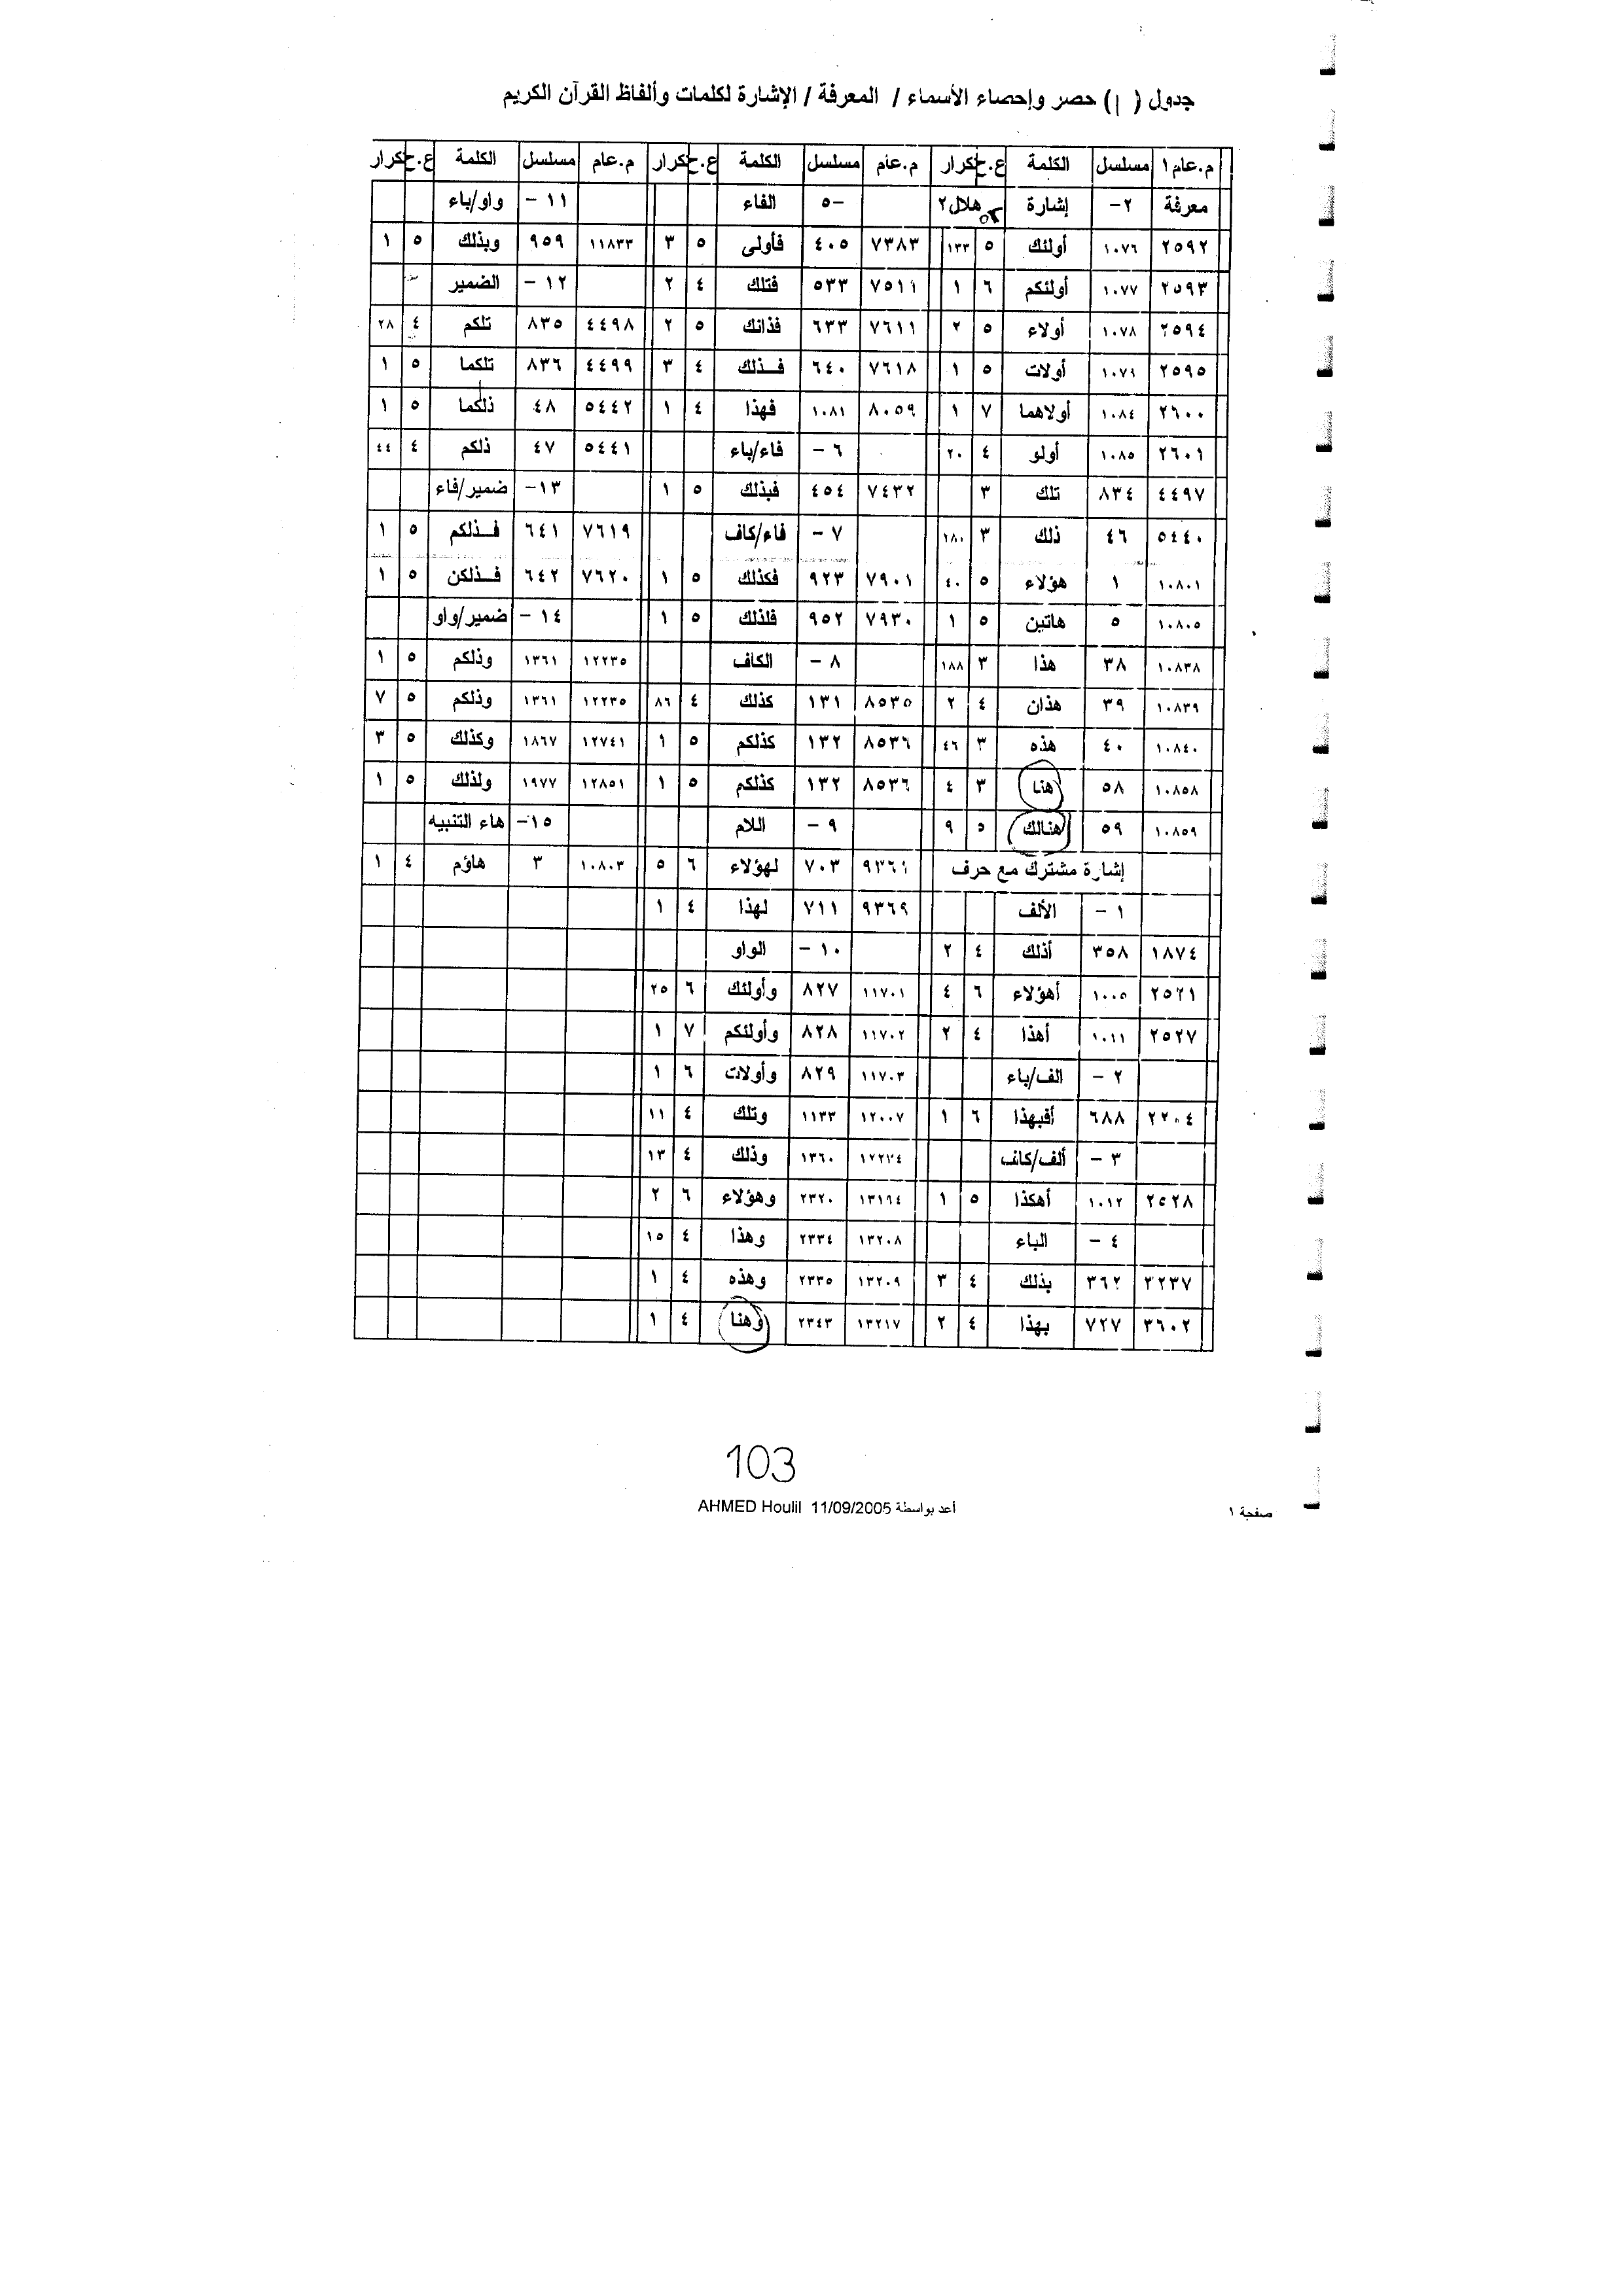 جدول ( ١ ) حصر وإحصاء الأسماء / المعرفة / الإشارة لكلمات وألفاظ القرآن الكريم
م.عام ١ مسلسل الكلمة ع.ح كرار م.عام مسلسل الكلمة ع.ح كرار م.عام مسلسل الكلمة ع.ح كرار
معرفة ٢- إشارة هلال ٢ ٥- الفاء ١١- واو/باء
٢٥٩٢ ١٠٧٦ أولئك ٥ ١٣٣ ٧٣٨٣ ٤٠٥ فأولى ٥ ٣ ١١٨٣٣ ٩٥٩ وبذلك ٥ ١
٢٥٩٣ ١٠٧٧ أولئكم ٦ ١ ٧٥١١ ٥٣٣ فتلك ٤ ٢ ١٢- الضمير
٢٥٩٤ ١٠٧٨ أولاء ٥ ٢ ٧٦١١ ٦٣٣ فذانك ٥ ٢ ٤٤٩٨ ٨٣٥ تلكم ٤ ٢٨
٢٥٩٥ ١٠٧٩ أولات ٥ ١ ٧٦١٨ ٦٤٠ فـذلك ٤ ٣ ٤٤٩٩ ٨٣٦ تلكما ٥ ١
٢٦٠٠ ١٠٨٤ أولاهما ٧ ١ ٨٠٥٩ ١٠٨١ فهذا ٤ ١ ٥٤٤٢ ٤٨ ذلكما ٥ ١
٢٦٠١ ١٠٨٥ أولو ٤ ٢٠ ٦- فاء/باء ٥٤٤١ ٤٧ ذلكم ٤ ٤٤
٤٤٩٧ ٨٣٤ تلك ٣ ٧٤٣٢ ٤٥٤ فبذلك ٥ ١ ١٣- ضمير/فاء
٥٤٤٠ ٤٦ ذلك ٣ ١٨٠ ٧- فاء/كاف ٧٦١٩ ٦٤١ فـذلكم ٥ ١
١٠٨٠١ ١ هؤلاء ٥ ٤٠ ٧٩٠١ ٩٢٣ فكذلك ٥ ١ ٧٦٢٠ ٦٤٢ فـذلكن ٥ ١
١٠٨٠٥ ٥ هاتين ٥ ١ ٧٩٣٠ ٩٥٢ فلذلك ٥ ١ ١٤- ضمير/واو
١٠٨٣٨ ٣٨ هذا ٣ ١٨٨ ٨- الكاف ١٢٢٣٥ ١٣٦١ وذلكم ٥ ١
١٠٨٣٩ ٣٩ هذان ٤ ٢ ٨٥٣٥ ١٣١ كذلك ٤ ٨٦ ١٢٢٣٥ ١٣٦١ وذلكم ٥ ٧
١٠٨٤٠ ٤٠ هذه ٣ ٤٦ ٨٥٣٦ ١٣٢ كذلكم ٥ ١ ١٢٧٤١ ١٨٦٧ وكذلك ٥ ٣
١٠٨٥٨ ٥٨ هنا ٣ ٤ ٨٥٣٦ ١٣٢ كذلكم ٥ ١ ١٢٨٥١ ١٩٧٧ ولذلك ٥ ١
١٠٨٥٩ ٥٩ هنالك ٥ ٩ ٩- اللام ١٥- هاء التنبيه
إشارة مشترك مع حرف ٩٣٦١ ٧٠٣ لهؤلاء ٦ ٥ ١٠٨٠٣ ٣ هاؤم ٤ ١
١- الألف ٩٣٦٩ ٧١١ لهذا ٤ ١
١٨٧٤ ٣٥٨ أذلك ٤ ٢ ١٠- الواو
٢٥٢١ ١٠٠٥ أهؤلاء ٦ ٤ ١١٧٠١ ٨٢٧ وأولئك ٦ ٢٥
٢٥٢٧ ١٠١١ أهذا ٤ ٢ ١١٧٠٢ ٨٢٨ وأولئكم ٧ ١
٢- الف/باء ١١٧٠٣ ٨٢٩ وأولات ٦ ١
٢٢٠٤ ٦٨٨ أفبهذا ٦ ١ ١٢٠٠٧ ١١٣٣ وتلك ٤ ١١
٣- ألف/كاف ١٢٢٣٤ ١٣٦٠ وذلك ٤ ١٣
٢٥٢٨ ١٠١٢ أهكذا ٥ ١ ١٣١٩٤ ٢٣٢٠ وهؤلاء ٦ ٢
٤- الباء ١٣٢٠٨ ٢٣٣٤ وهذا ٤ ١٥
٣٢٣٧ ٣٦٢ بذلك ٤ ٣ ١٣٢٠٩ ٢٣٣٥ وهذه ٤ ١
٣٦٠٢ ٧٢٧ بهذا ٤ ٢ ١٣٢١٧ ٢٣٤٣ وهنا ٤ ١
103
أعد بواسطة AHMED Houlil 11/09/2005
صفحة ١